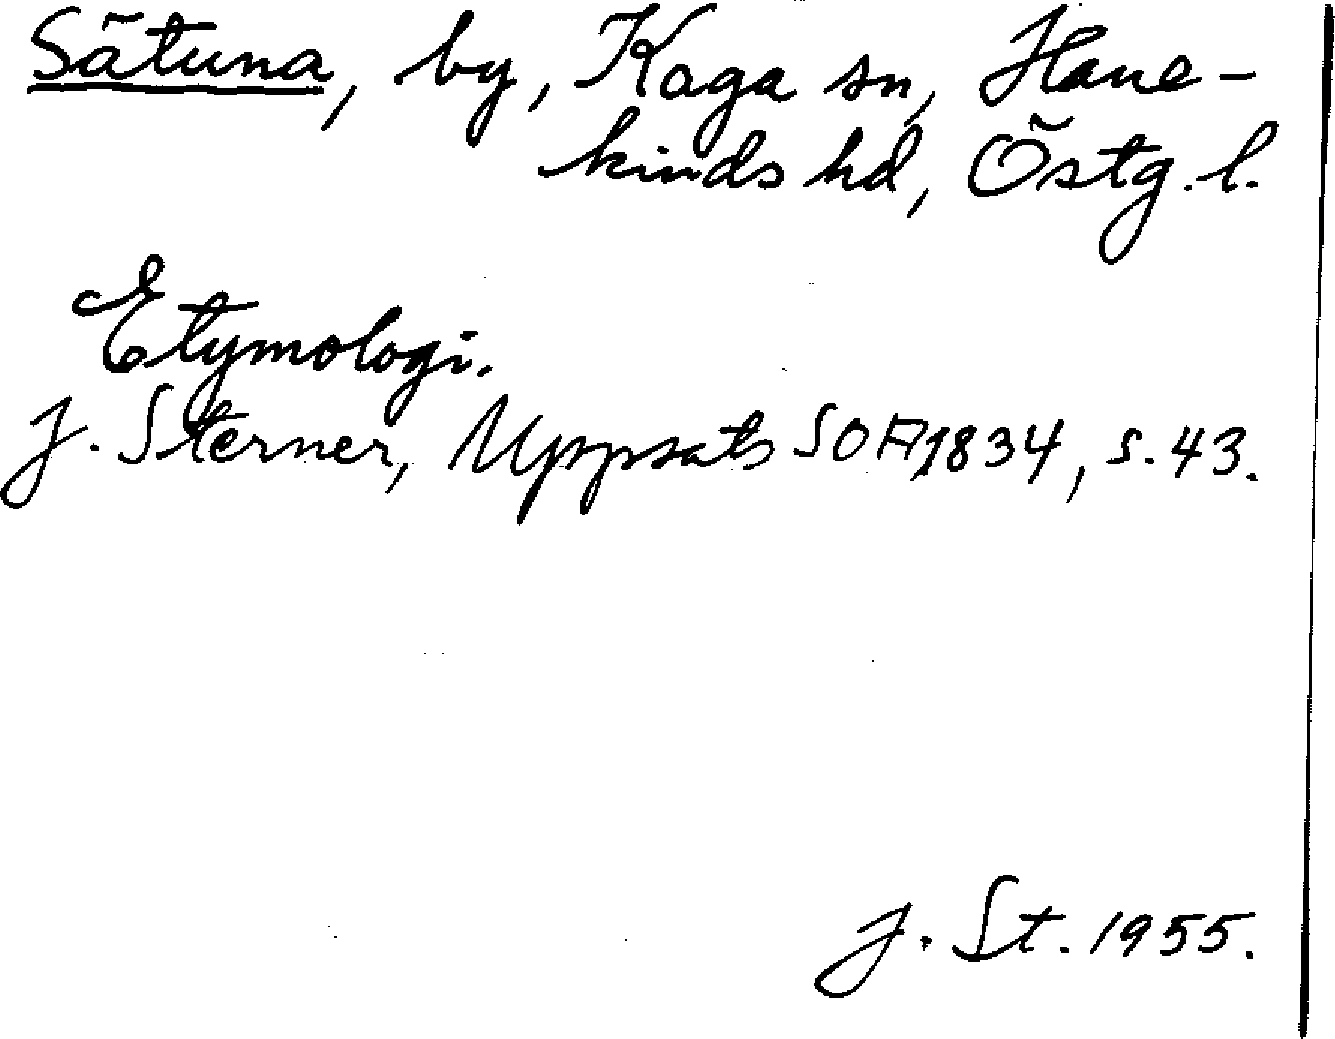 Sätuna, by, Kaga sn, Hane-
kinds hd, Östg. l.
Etymologi.
J. Sterner, Uppsats SOA 1834, s. 43.
J. St. 1955.